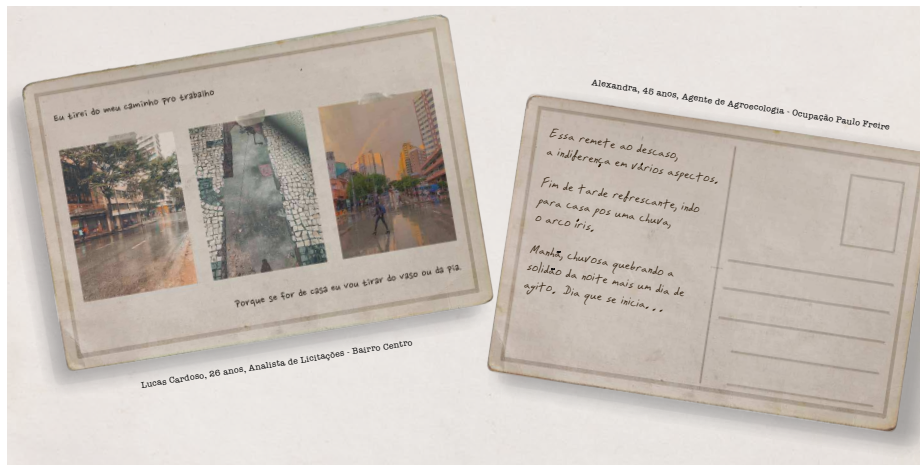 Eu tirei do meu caminho pro trabalho
Porque se for de casa eu vou tirar do vaso ou da pia
Lucas Cardoso, 26 anos, Analista de Licitações - Bairro Centro
Alexandra, 45 anos, Agente de Agroecologia - Ocupação Paulo Freire
Essa remete ao descaso,
a indiferença em vários aspectos.
Fim de tarde refrescante, indo
para casa pos uma chuva,
o arco íris.
Manhã, chuvosa quebrando a
solidão da noite mais um dia de
agito. Dia que se inicia...